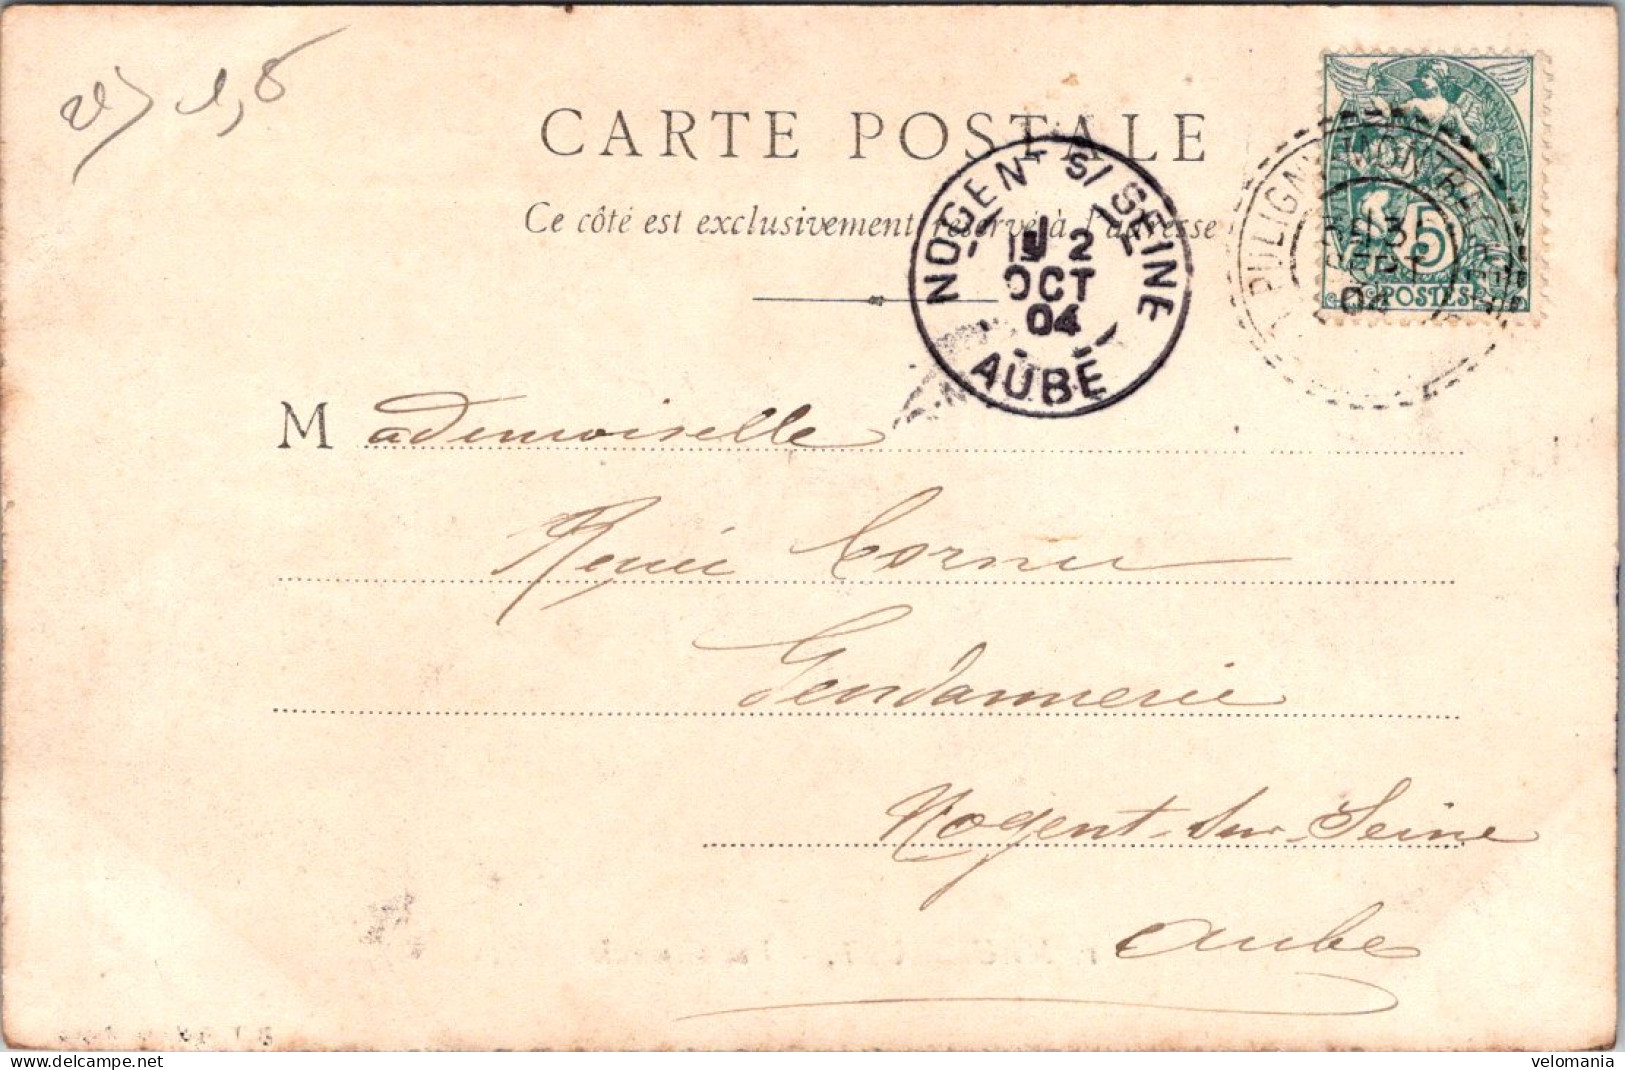 CARTE POSTALE
Ce côté est exclusivement réservé à l'adresse
NOGENT S/ SEINE
2
OCT
04
AUBE
PULIGNY-MONTRACHET
04
5
POSTES
Mademoiselle
Renée Cornu
Gendarmerie
Nogent-sur-Seine
Aube
www.delcampe.net
velomania